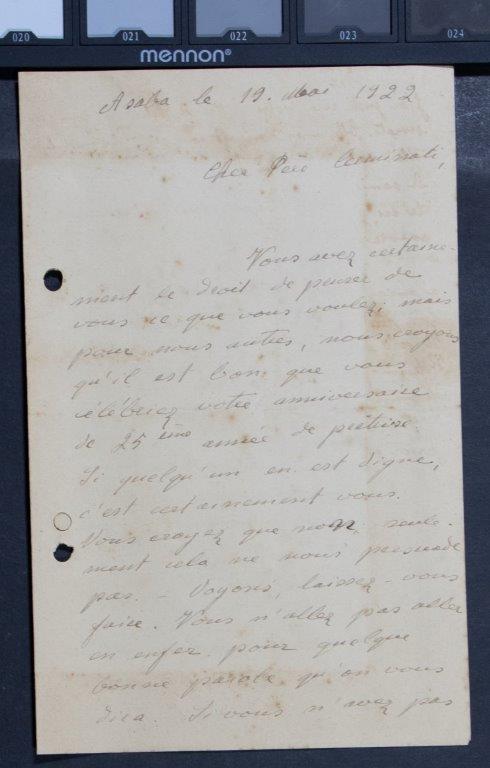 020 021 022 023 024
mennon®
Asaba le 19. Mai 1922
Cher Père Cerminati,
Vous avez certaine-
ment le droit de penser de
vous ce que vous voulez; mais
pour nous autres, nous croyons
qu'il est bon que vous
célébriez votre anniversaire
de 25ème année de prêtrise.
Si quelqu'un en est digne,
c'est certainement vous.
Vous croyez que non, seule-
ment cela ne nous persuade
pas. - Voyons, laissez-vous
faire. Vous n'allez pas aller
en enfer pour quelque
bonne parole qu'on vous
dira. Si vous n'avez pas